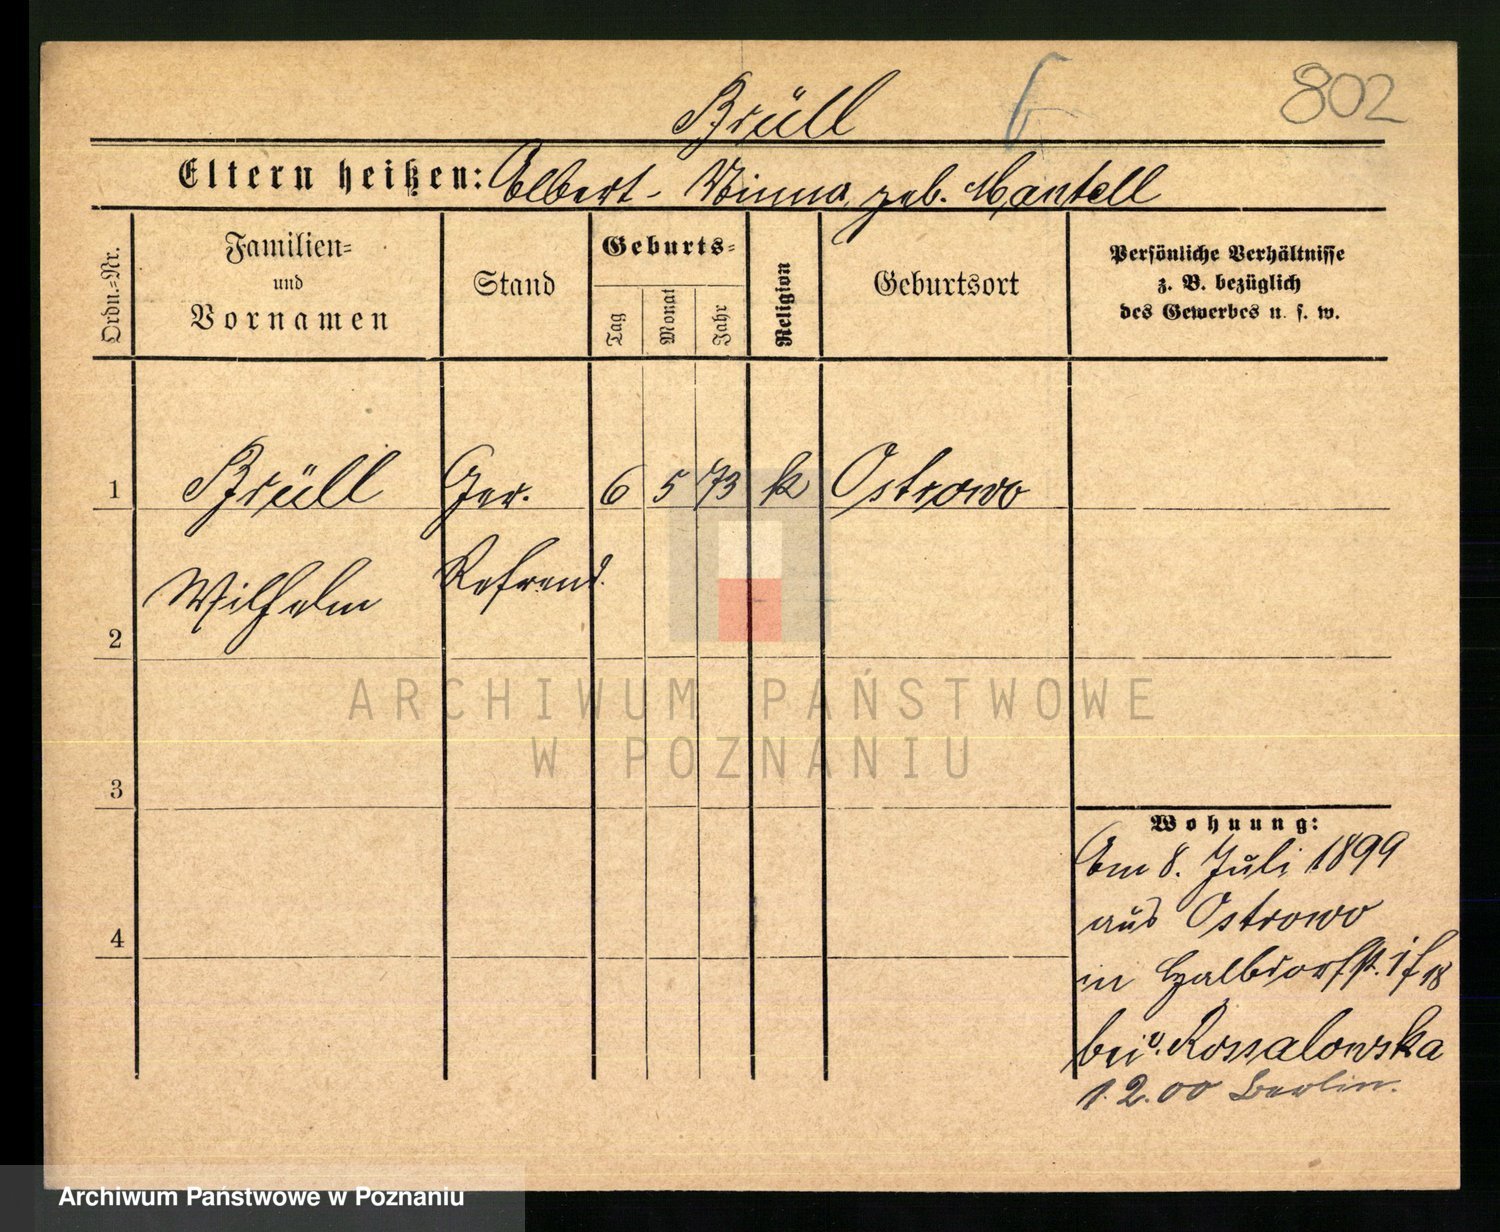 Brüll 802
Eltern heißen: Albert - Minna, geb. Mantell
Ordn.-Nr.
Familien-
und
Vornamen
Stand
Geburts-
Tag
Monat
Jahr
Religion
Geburtsort
Persönliche Verhältnisse
z. B. bezüglich
des Gewerbes u. s. w.
1 Brüll Ger. 6 5 73 k Ostrowo
Wilhelm Refrend.
2
ARCHIWUM PAŃSTWOWE
W POZNANIU
3
Wohnung:
Am 8. Juli 1899
aus Ostrowo
4
in Halbdorfst.
bei v. Rossalowska
1.2.00 Berlin.
Archiwum Państwowe w Poznaniu